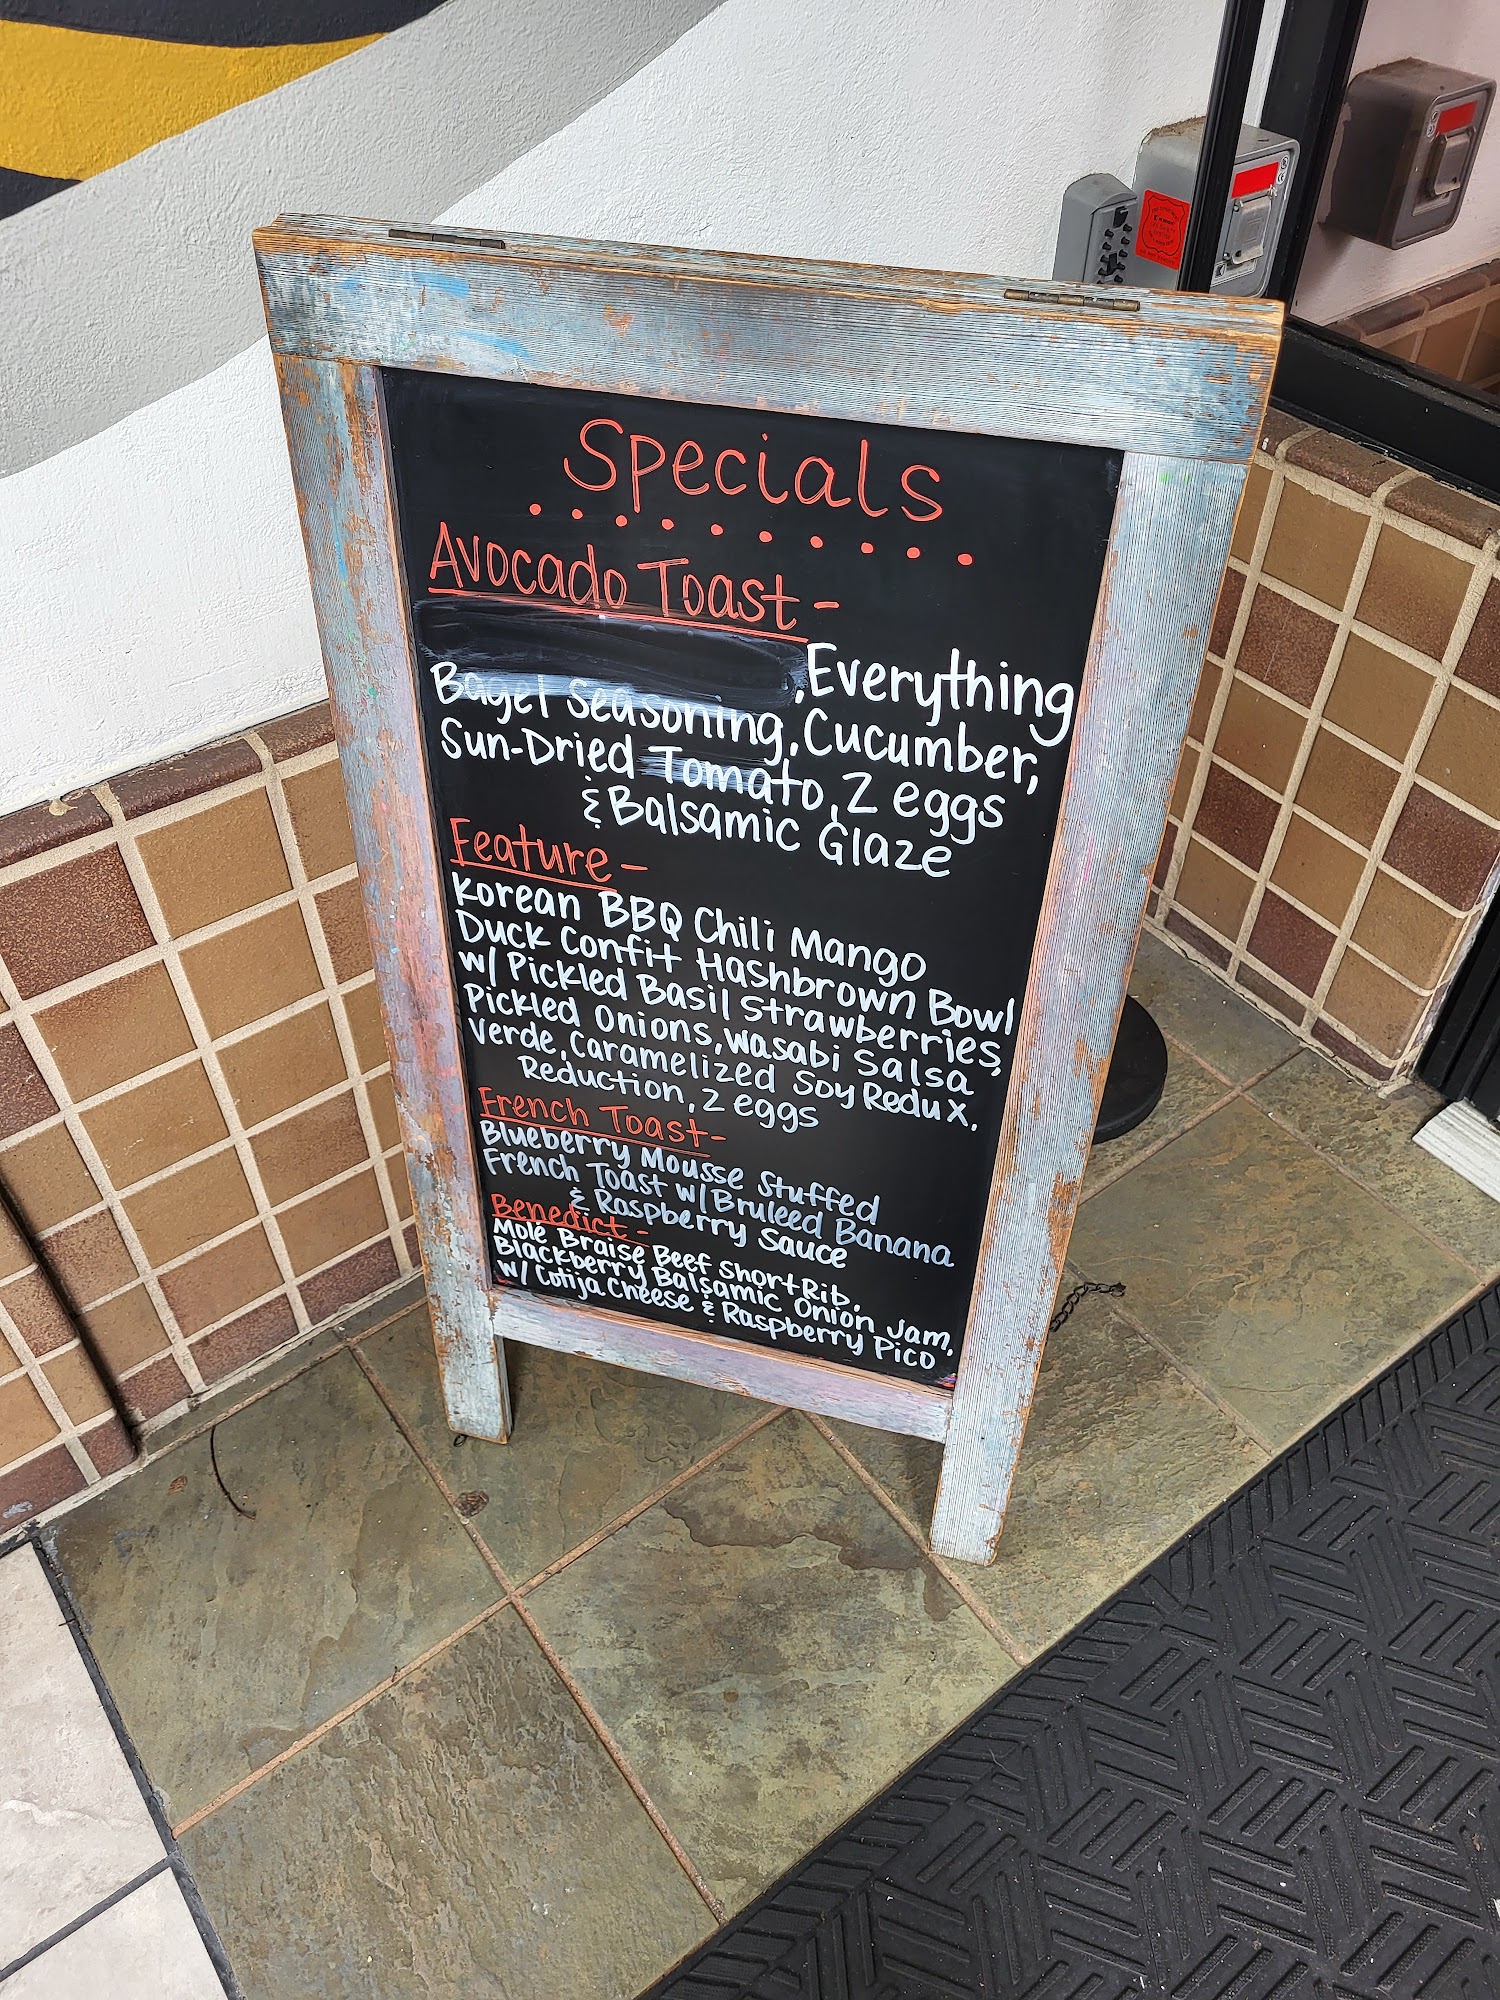 Specials
Avocado Toast -
, Everything
Bagel Seasoning, Cucumber,
Sun-Dried Tomato, 2 eggs
& Balsamic Glaze
Feature -
Korean BBQ Chili Mango
Duck Confit Hashbrown Bowl
w/ Pickled Basil Strawberries,
Pickled Onions, Wasabi Salsa
Verde, Caramelized Soy Redux,
Reduction, 2 eggs
French Toast -
Blueberry Mousse Stuffed
French Toast w/ Bruleed Banana
& Raspberry Sauce
Benedict -
Mole Braise Beef Short Rib,
Blackberry Balsamic Onion Jam,
w/ Cotija Cheese & Raspberry Pico